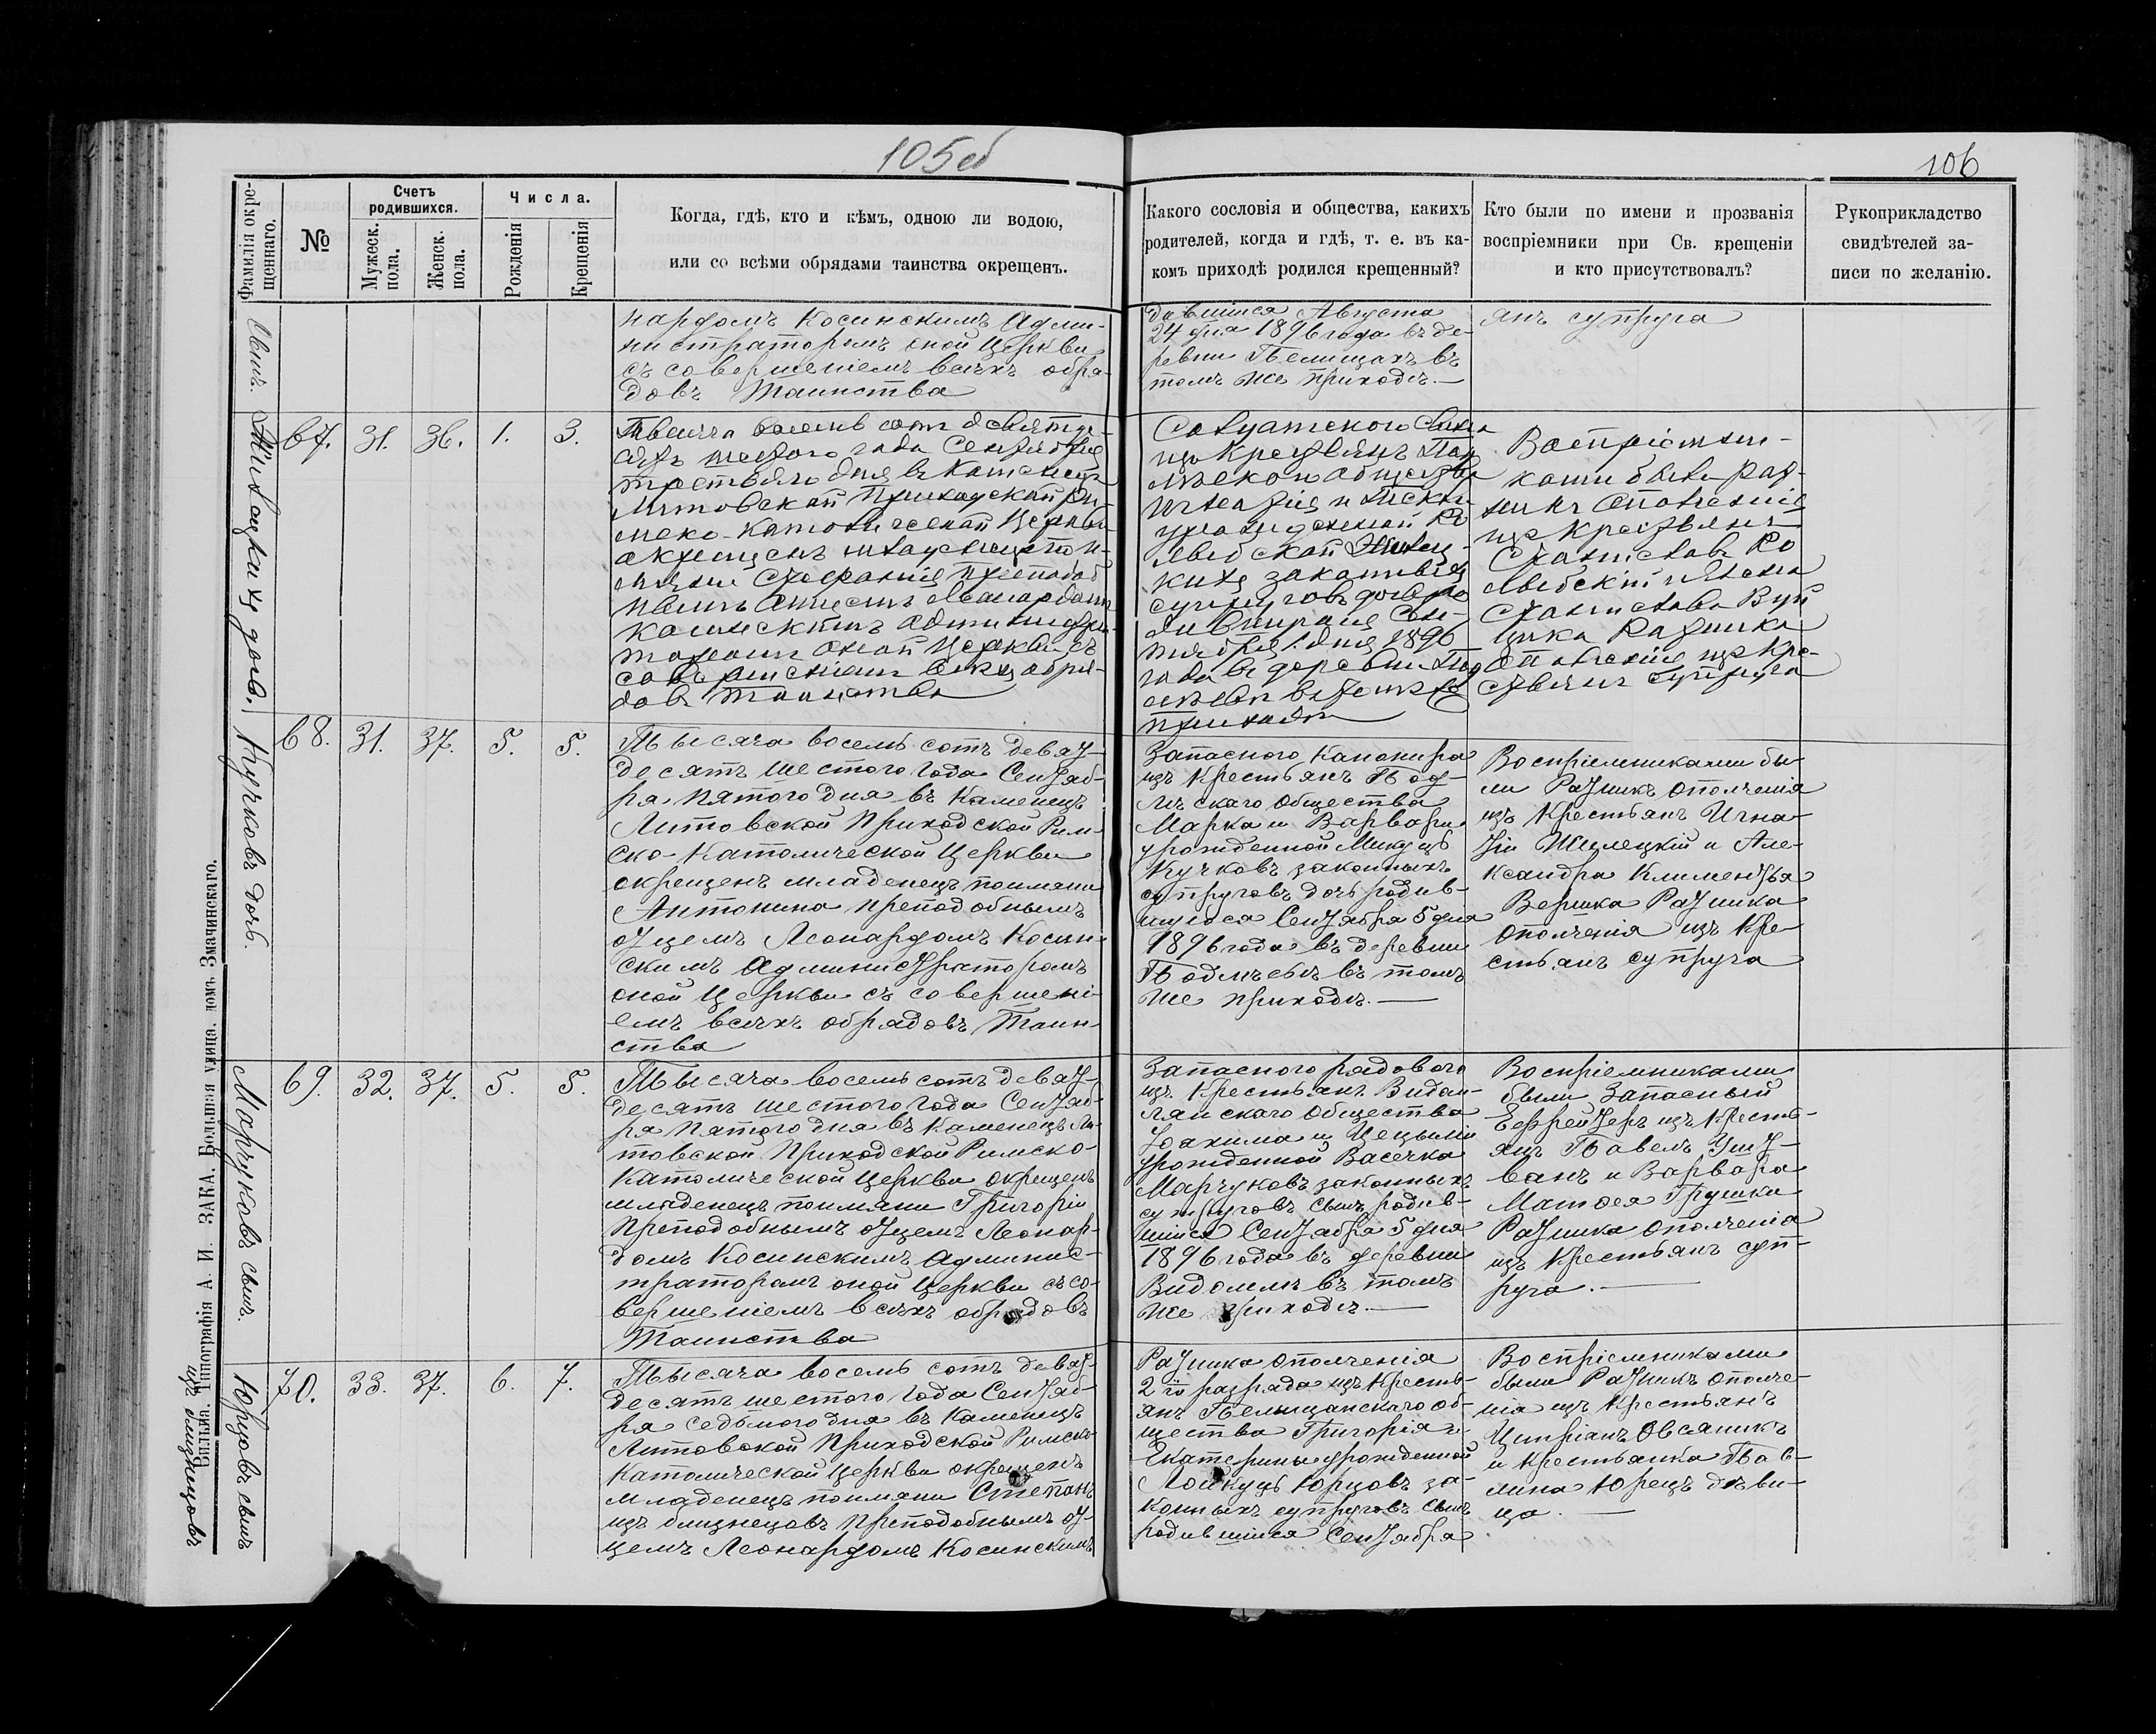 105об
106
Фамилія окре-
щеннаго.
№
Счетъ
родившихся.
Мужеск.
пола.
Женск.
пола.
Числа.
Рожденія
Крещенія
Когда, гдѣ, кто и кѣмъ, одною ли водою,
или со всѣми обрядами таинства окрещенъ.
Какого сословія и общества, какихъ
родителей, когда и гдѣ, т. е. въ ка-
комъ приходѣ родился крещенный?
Кто были по имени и прозванія
воспріемники при Св. крещеніи
и кто присутствовалъ?
Рукоприкладство
свидѣтелей за-
писи по желанію.
нардомъ Косинскимъ Адми-
нистраторомъ оной Церкви
съ совершеніемъ всѣхъ обря-
довъ Таинства
дившійся Августа
24 дня 1896 года въ де-
ревни Пелищахъ въ
томъ же приходѣ.
янъ супруга
дочь.
67.
31.
36.
1.
3.
Тысяча восемь сотъ девятде-
сятъ шестого года Сентября
третьяго дня въ Каменецъ
Литовской Приходской Ри-
мско-Католической Церкви
окрещенъ младенецъ по и-
мени Стефанія Преподоб
нымъ Отцемъ Леонардомъ
Косинскимъ Администра-
торомъ оной Церкви съ
совершеніемъ всѣхъ обря-
довъ Таинства
изъ Крестьянъ
общества
законныхъ
супруговъ дочь ро
дившаяся Сен-
тября 1 дня 1896
года въ деревни
приходѣ
Воспріемни-
ками были рат-
никъ Ополченія
изъ Крестьянъ
Станиславъ
Станислава
Ратника
Ополченія изъ Кре-
стьянъ супруга
Кучковъ дочь.
68.
31.
37.
5.
5.
Тысяча восемь сотъ девят-
десятъ шестого года Сентяб-
ря пятого дня въ Каменецъ
Литовской Приходской Рим-
ско-Католической Церкви
окрещенъ младенецъ по имени
Антонина преподобнымъ
отцемъ Леонардомъ Косин-
скимъ Администраторомъ
оной Церкви съ совершені-
емъ всѣхъ обрядовъ Таин-
ства
Запасного Канонира
изъ Крестьянъ Под-
лѣскаго Общества
Марка и Варвары
урожденной Микуцъ
Кучковъ законныхъ
супруговъ дочь родив-
шуюся Сентября 5 дня
1896 года въ деревни
Подлѣсьѣ въ томъ
же приходѣ.
Воспріемниками бы-
ли Ратникъ ополченія
изъ Крестьянъ Игна-
тій Шилецкій и Але-
ксандра Климентья
Вершка Ратника
ополченія изъ Кре-
стьянъ супруга
Марчуковъ сынъ.
69.
32.
37.
5.
5.
Тысяча восемь сотъ девят-
десятъ шестого года Сентяб-
ря пятого дня въ Каменецъ Ли-
товской Приходской Римско-
Католической Церкви окрещенъ
младенецъ по имени Григорій
Преподобнымъ отцемъ Леонар-
домъ Косинскимъ Админис-
траторомъ оной Церкви съ со-
вершеніемъ всѣхъ обрядовъ
Таинства
Запасного рядового
изъ Крестьянъ Видом-
лянскаго Общества
Іоахима и Цециліи
урожденной Васечко
Марчуковъ законныхъ
супруговъ сынъ родив-
шійся Сентября 5 дня
1896 года въ деревни
Видомлѣ въ томъ
же приходѣ.
Воспріемниками
были Запасный
Ефрейторъ изъ Кресть-
янъ Павелъ
и Варвара
Матвея Грушки
Ратника ополченія
изъ Крестьянъ суп-
руга.
Юрцовъ сынъ
изъ близнецовъ
70.
33.
37.
6.
7.
Тысяча восемь сотъ девят-
десятъ шестого года Сентяб-
ря седьмого дня въ Каменецъ
Литовской Приходской Римско-
Католической Церкви окрещенъ
младенецъ по имени Степанъ
изъ близнецовъ преподобнымъ от-
цемъ Леонардомъ Косинскимъ
Ратника ополченія
2го разряда изъ Кресть-
янъ Пелищанскаго об-
щества Григорія и
Екатерины урожденной
Лойкуцъ Юрцовъ за-
конныхъ супруговъ сынъ
родившійся Сентября
Воспріемниками
были Ратникъ ополче-
нія изъ Крестьянъ
Ципріанъ Овсяникъ
и Крестьянка Пав-
лина Юрецъ дѣви-
ца.
Вильна. Типографія А. И. ЗАКА. Большая улица, домъ Змачинскаго.